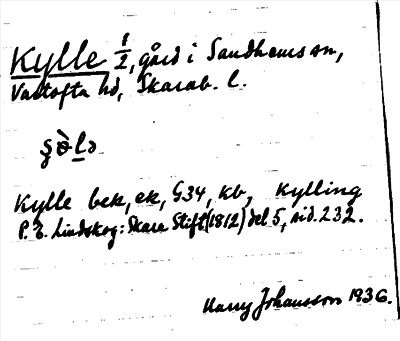 Kylle 1/2, gård i Sandhems sn,
Vartofta hd, Skarab. l.
Kylle bek, ek, G34, kb, Kylling
P. E. Lindskog: Skara Stift (1812) del 5, sid. 232.
Harry Johansson 1936.